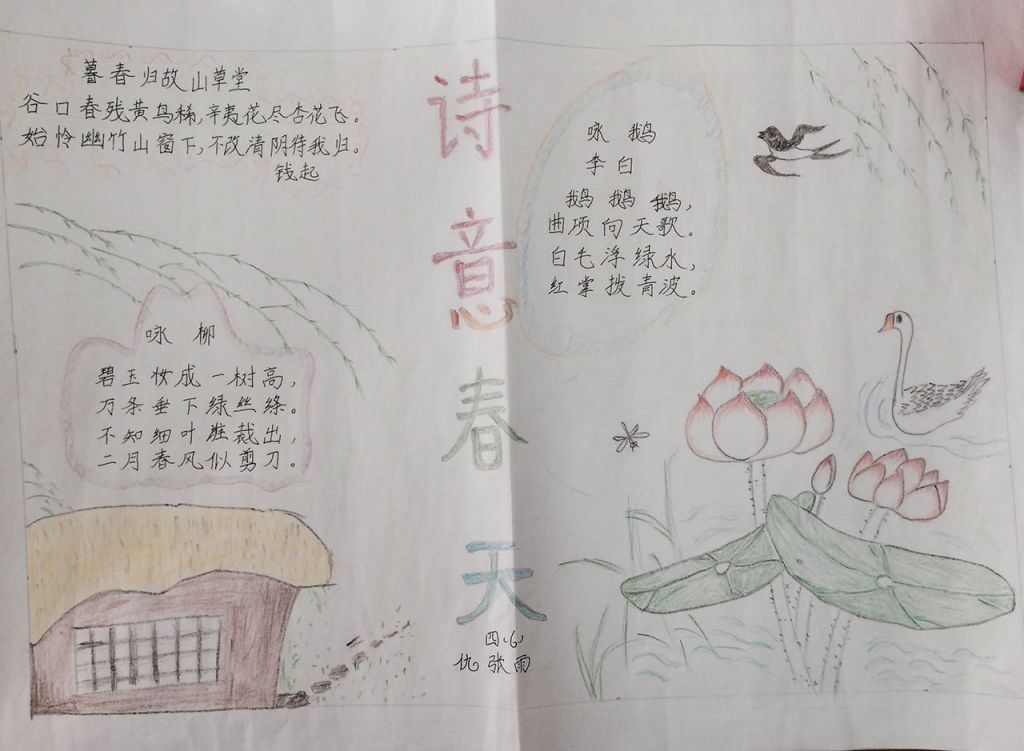 暮春归故山草堂
谷口春残黄鸟稀,辛夷花尽杏花飞。
始怜幽竹山窗下,不改清阴待我归。
钱起
咏柳
碧玉妆成一树高,
万条垂下绿丝绦。
不知细叶谁裁出,
二月春风似剪刀。
诗意春天
四(6)
仇张雨
咏鹅
李白
鹅鹅鹅,
曲项向天歌。
白毛浮绿水,
红掌拨青波。